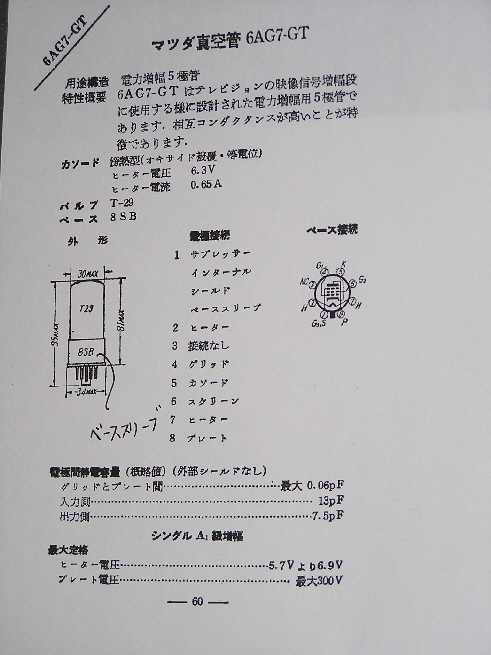 6AG7-GT
マツダ真空管 6AG7-GT
用途構造 電力増幅5極管
特性概要 6AG7-GTはテレビジョンの映像信号増幅段
に使用する様に設計された電力増幅用5極管で
あります．相互コンダクタンスが高いことが特
徴であります．
カソード 傍熱型(オキサイド被覆・等電位)
ヒーター電圧 6.3V
ヒーター電流 0.65A
バルブ T-29
ベース 8SB
外形 電極接続 ベース接続
1 サプレッサー
インターナル
シールド
ベーススリーブ
2 ヒーター
3 接続なし
4 グリッド
5 カソード
6 スクリーン
7 ヒーター
8 プレート
30MAX
T29
8SB
81MAX
95MAX
34MAX
ベーススリーブ
G₁ K
NC G₂
H H
G₃,S P
電極間静電容量 (概略値) (外部シールドなし)
グリッドとプレート間……最大 0.06pF
入力側……13pF
出力側……7.5pF
シングル A₁ 級増幅
最大定格
ヒーター電圧……5.7Vより6.9V
プレート電圧……最大300V
— 60 —